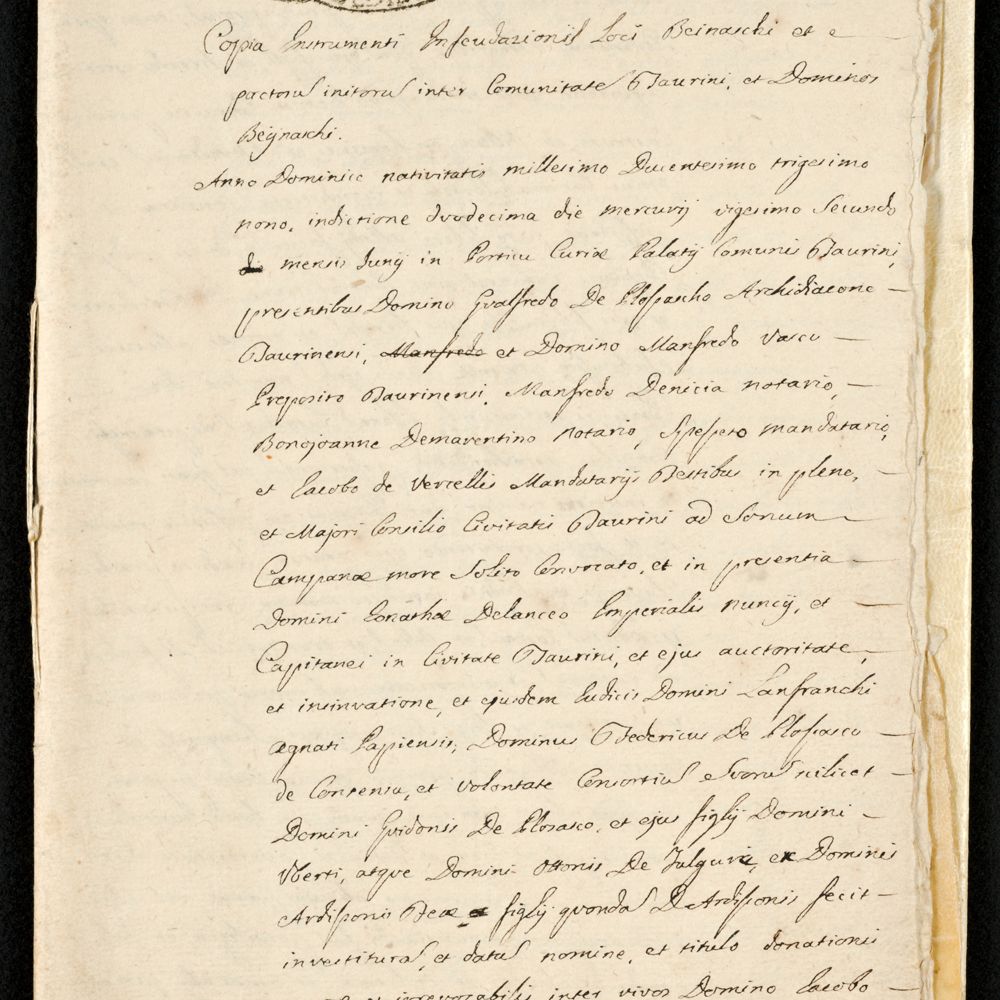 Copia Instrumenti Infeudazionis Loci Beinaschi et e
pactorum initorum inter Comunitate Taurini, et Dominos
Beijnaschi.
Anno Dominice nativitatis millesimo Ducentesimo trigesimo
nono, indictione duodecima die mercurij vigesimo Secundo
mensis Junij in Porticu Curiæ Palatij Comunis Taurini,
presentibus Domino Gualfredo De Plosascho Archidiacone
Taurinensi, Manfredo et Domino Manfredo Vascu
Preposito Taurinensi, Manfredo Denicia notario,
Bonojoanne Demaventino Notario, mandatario,
et Jacobo de Vercellis Mandatarijs Testibus in plene,
et Majori Consilio Civitatis Taurini ad Sonum
Campanæ more Solito Convocato, et in presentia
Domini Jonathæ Delanceo Imperialis nuncij, et
Capitanei in Civitate Taurini, et ejus auctoritate,
et insinuatione, et ejusdem Judicis Domini Lanfranchi
ægnati Papiensis, Dominus Tedericus De Plosascu
de Consensu, et volontate Consortium Suorum scilicet
Domini Guidonis De Plosasco, et ejus figlij Domini
Uberti, atque Domini Ottonis De Julguriæ, ex Dominis
Ardisonis figlij quondam D. Ardisonis fecit
investituram, et datum nomine, et titulo donationis
et irrevocabilis inter vivos Domino Jacobo